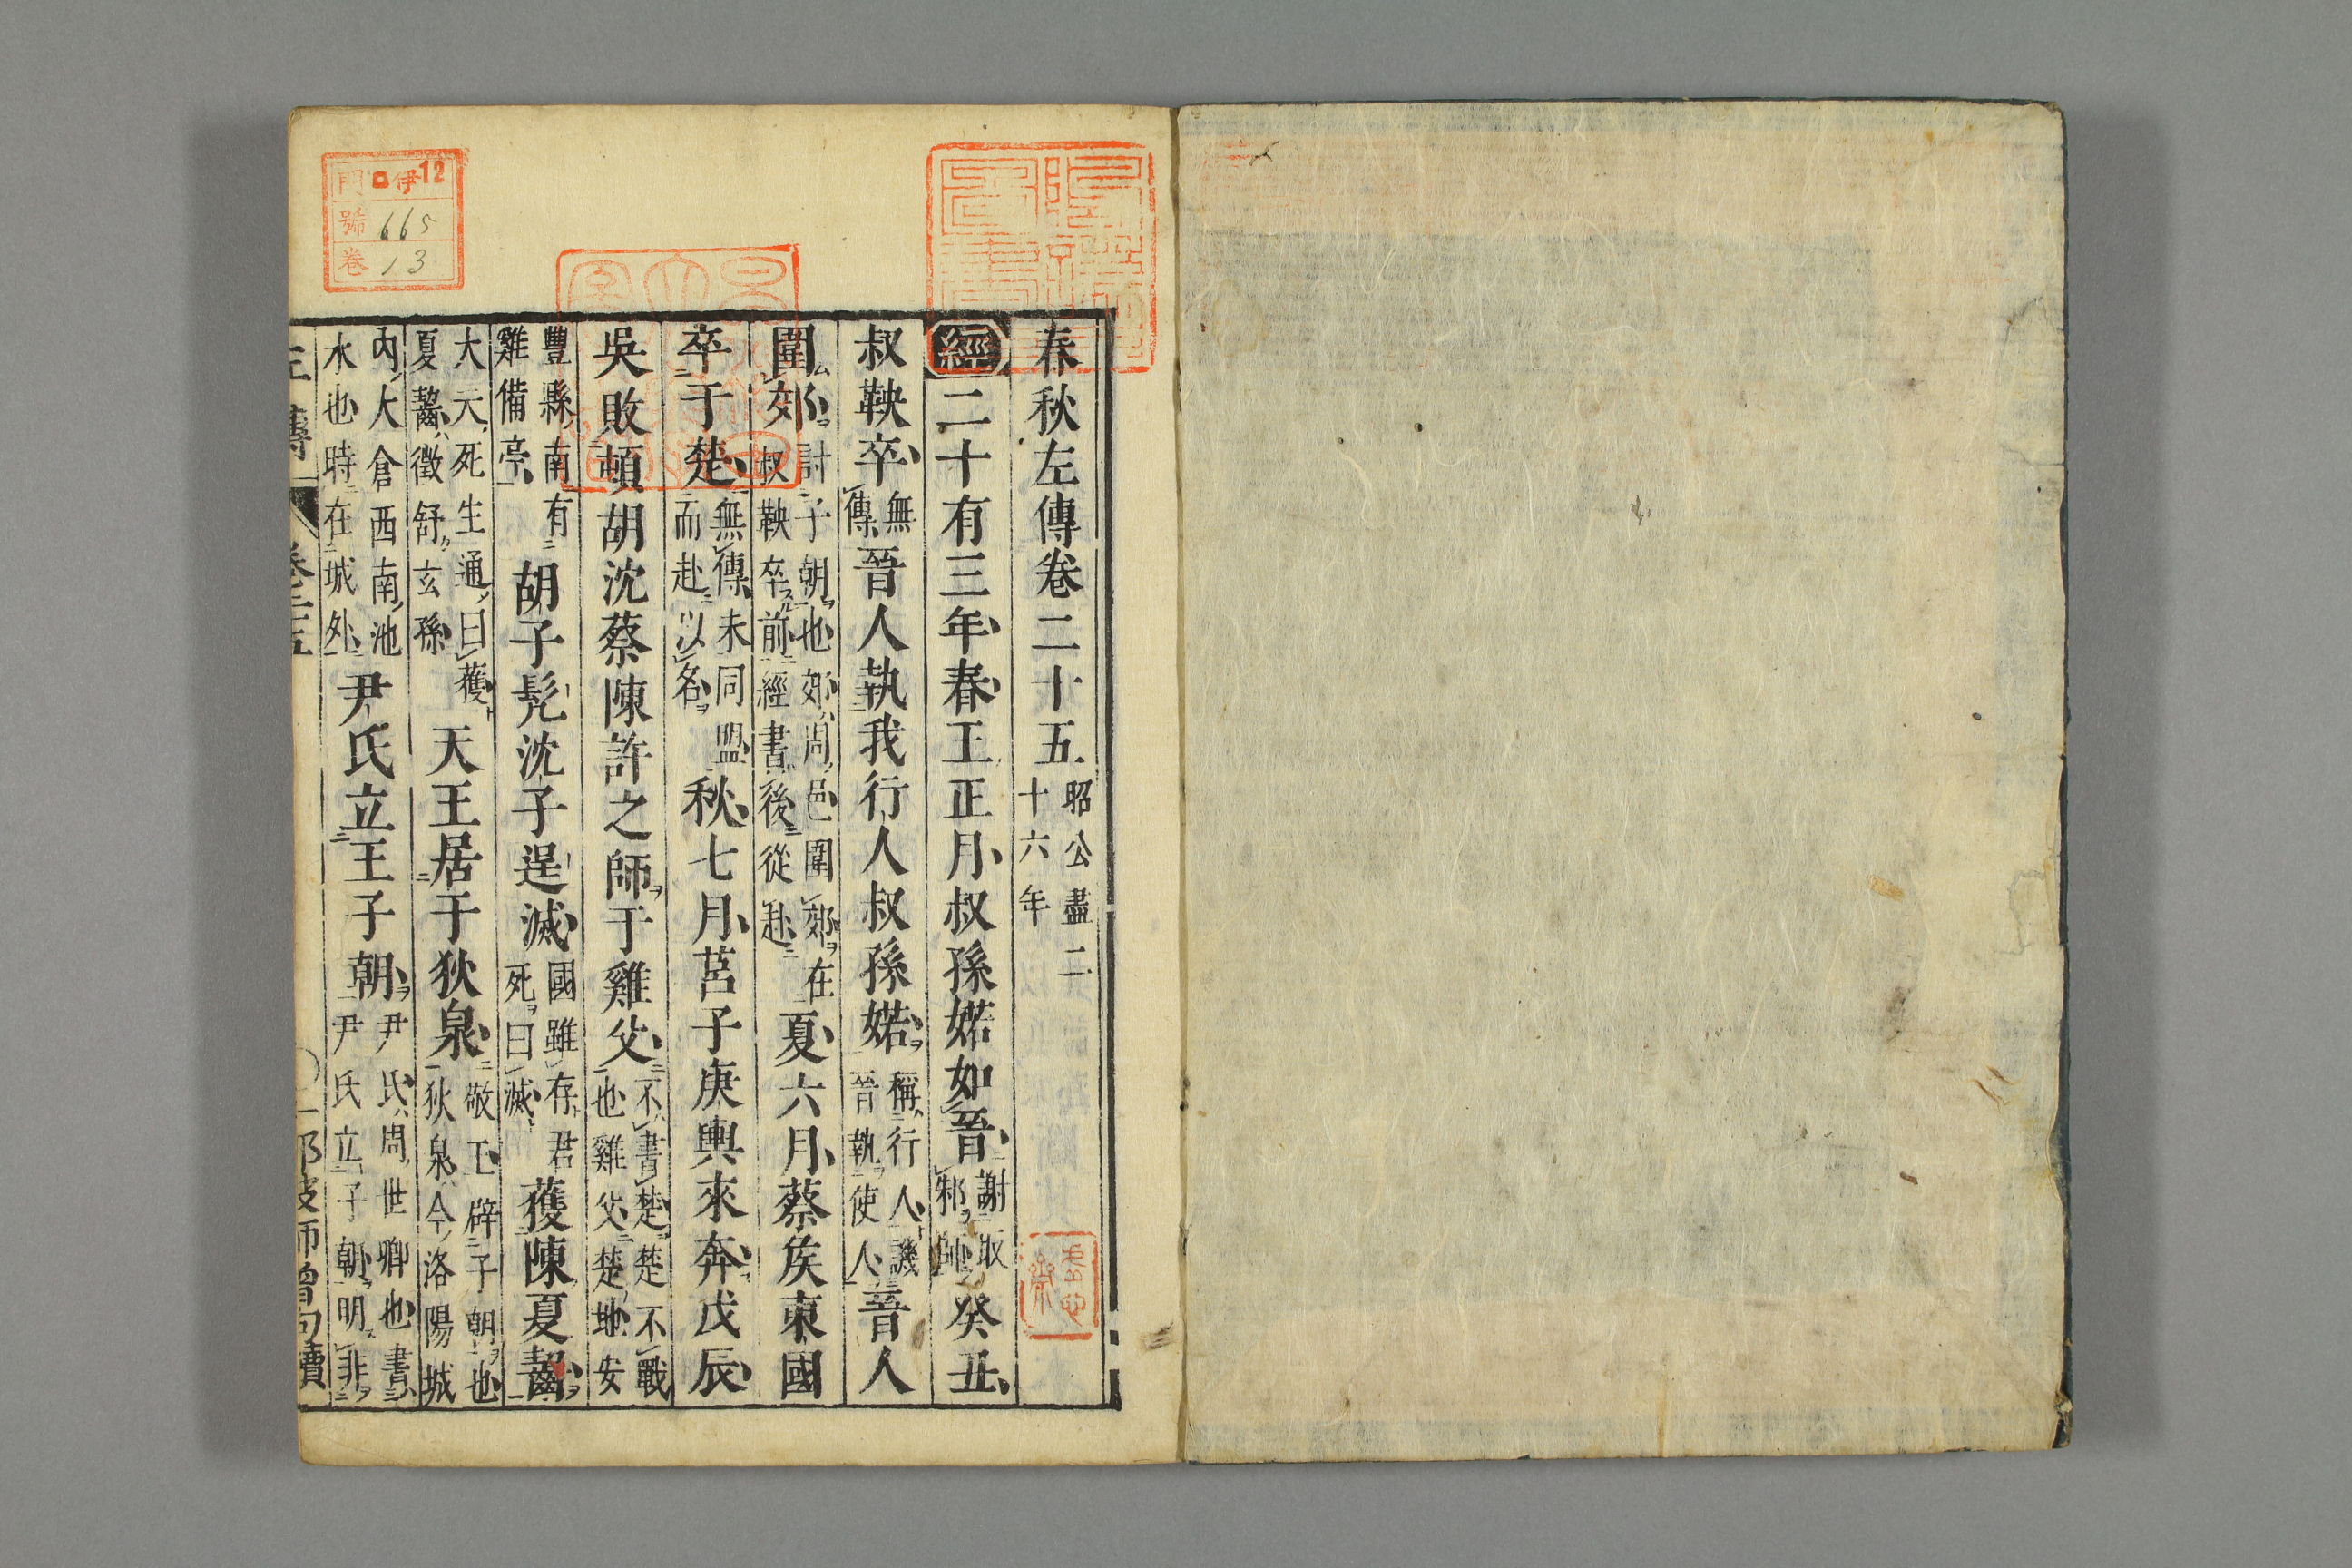 春秋左傳卷二十五 昭公盡二十六年
經 二十有三年春王正月叔孫婼如晉 謝取邾師 癸丑
叔鞅卒 無傳 晉人執我行人叔孫婼 稱行人譏晉執使人 晉人
圍郊 討子朝也郊周邑圍郊在叔鞅卒前經書後從赴 夏六月蔡矦東國
卒于楚 無傳未同盟而赴以名 秋七月莒子庚輿來奔戊辰
吳敗頓胡沈蔡陳許之師于雞父 不書楚楚不戰也雞父楚地安
豐縣南有雞備亭 胡子髠沈子逞滅 國雖存君死曰滅 獲陳夏齧
大夫死生通曰獲夏齧徵舒玄孫 天王居于狄泉 敬王辟子朝也狄泉今洛陽城
內大倉西南池水也時在城外 尹氏立王子朝 尹氏周世卿也書尹氏立子朝明非
左傳 卷二十五 一 那波師曾句讀
12
門 伊
號 665
卷 13